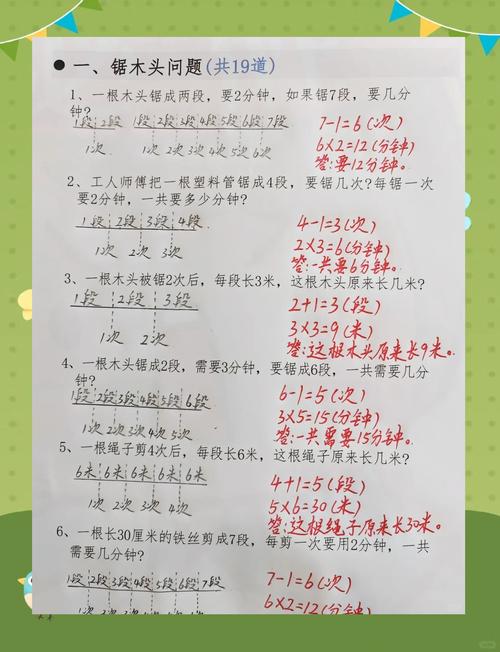 一、锯木头问题(共19道)
1、一根木头锯成两段，要2分钟，如果锯7段，要几分
钟？
1段 2段 1段 2段 3段 4段 5段 6段 7段
1次 1次 2次 3次 4次 5次 6次
7-1=6(次)
6×2=12(分钟)
答:要12分钟。
2、工人师傅把一根塑料管锯成4段，要锯几次?每锯一次
要2分钟，一共要多少分钟？
1段 2段 3段 4段
1次 2次 3次
4-1=3(次)
2×3=6(分钟)
答:一共要6分钟。
3、一根木头被锯2次后，每段长3米，这根木头原来长几米？
1段 2段 3段
1次 2次
2+1=3(段)
3×3=9(米)
答:这根木头原来长9米。
4、一根木头锯成2段，需要3分钟，要锯成6段，一共需要几分
钟？
1段 2段 3段 4段 5段 6段
1次 2次 3次 4次 5次
6-1=5(次)
3×5=15(分钟)
答:一共需要15分钟。
5、一根绳子剪4次后，每段长6米，这根绳子原来长几米？
6米 6米 6米 6米 6米
1次 2次 3次 4次
4+1=5(段)
5×6=30(米)
答:这根绳子原来长30米。
6、一根长30厘米的铁丝剪成7段，每剪一次要用2分钟，一共
需要几分钟？
1段 2段 3段 4段 5段 6段 7段
1次 2次 3次 4次 5次 6次
7-1=6(次)
6×2=12(分钟)